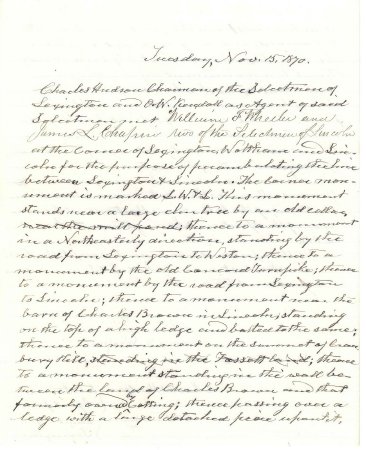 Tuesday, Nov. 15, 1870.
Charles Hudson Chairman of the Selectmen of
Lexington and O. W. Kendall as Agent of said
Selectmen met William F Wheeler and
James L Chapin two of the Selectmen of Lincoln
at the Corner of Lexington, Waltham and Lin-
coln for the purpose of perambulating the line
between Lexington & Lincoln. The corner mon-
ument is marked L. W. & L. This monument
stands near a large elm tree by an old cellar,
near the mill pond; thence to a monument
in a Northeasterly direction, standing by the
road from Lexington to Weston; thence to a
monument by the old Concord Turnpike; thence
to a monument by the road from Lexington
to Lincoln; thence to a monument near the
barn of Charles Brown in Lincoln, standing
on the top of a high ledge and bolted to the same;
thence to a monument on the summit of Cran-
bury Hill, standing in the Fassett land; thence
to a monument standing in the wall be-
tween the land of Charles Brown and that
formerly owned by Cutting; thence passing over a
ledge with a large detached piece upon it,